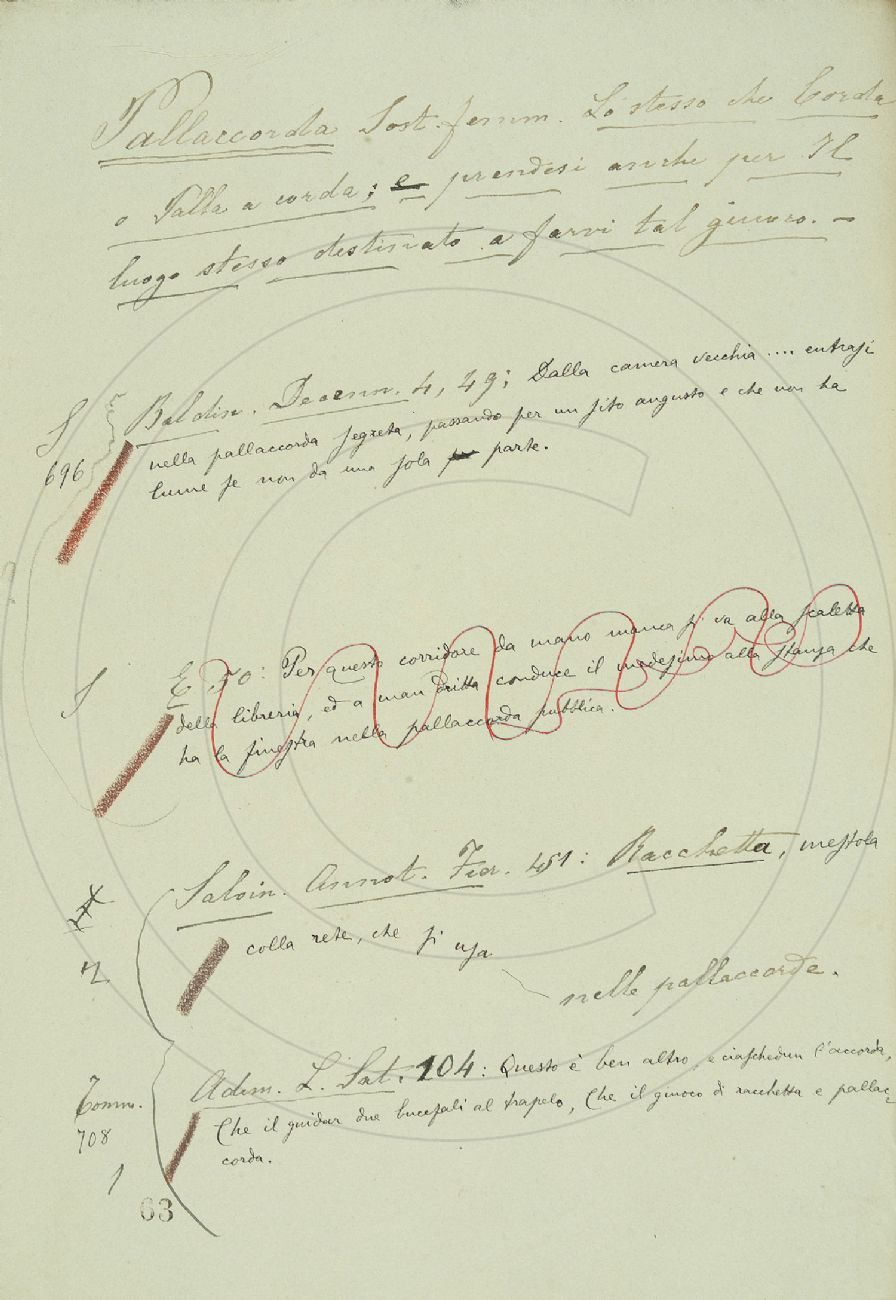 Pallaccorda Sost. femm. Lo stesso che Corda
o Palla a corda; e prendesi anche per Il
luogo stesso destinato a farvi tal giuoco. —
S
696
Baldin. Decenn. 4, 29: Dalla camera vecchia .... entrasi
nella pallaccorda segreta, passando per un sito angusto e che non ha
lume se non da una sola parte.
S
E 50: Per questo corridore da mano manca si va alla scaletta
della libreria, ed a man dritta conduce il medesimo alla stanza che
ha la finestra nella pallaccorda pubblica.
2
Salvin. Annot. Fier. 451: Racchetta, mestola
colla rete, che si usa
nelle pallaccorde.
Tomm.
708
1
Adim. L. Sat. 104: Questo è ben altro, e ciaschedun l'accorda,
Che il guidar due bucefali al trapelo, Che il giuoco di racchetta e pallac-
corda.
63